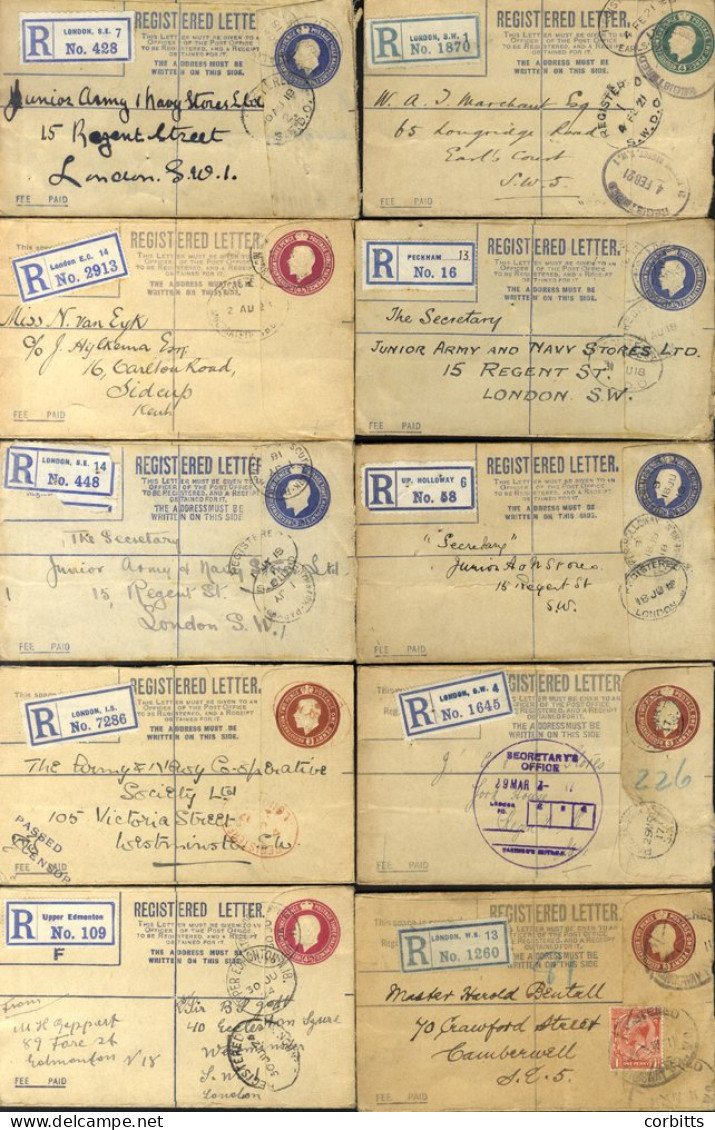 REGISTERED LETTER
THIS LETTER MUST BE GIVEN TO AN
OFFICER OF THE POST OFFICE
TO BE REGISTERED, AND A RECEIPT
OBTAINED FOR IT.
THE ADDRESS MUST BE
WRITTEN ON THIS SIDE.
R
LONDON, S.E. 7
No. 428
Junior Army & Navy Stores Ltd
15 Regent Street
London. S.W.1.
FEE PAID
REGISTERED LETTER.
THIS LETTER MUST BE GIVEN TO AN
OFFICER OF THE POST OFFICE
TO BE REGISTERED, AND A RECEIPT
OBTAINED FOR IT.
THE ADDRESS MUST BE
WRITTEN ON THIS SIDE.
R
LONDON, S.W. 1
No. 1870
4 FE 21
REGISTERED
4 FE 21
S.W.D.O.
4 FEB 21
W. A. J. Marchant Esq
65 Longridge Road
Earl's Court
S.W.5.
FEE PAID
This space
REGISTERED LETTER.
THIS LETTER MUST BE GIVEN TO AN
OFFICER OF THE POST OFFICE
TO BE REGISTERED, AND A RECEIPT
OBTAINED FOR IT.
THE ADDRESS MUST BE
WRITTEN ON THIS SIDE.
R
London E.C. 14
No. 2913
2 AU 2
Miss N. van Eyk
c/o J. Hylkema Esq.
16, Carlton Road,
Sidcup
Kent
FEE PAID
REGISTERED LETTER.
THIS LETTER MUST BE GIVEN TO AN
OFFICER OF THE POST OFFICE
TO BE REGISTERED, AND A RECEIPT
OBTAINED FOR IT.
THE ADDRESS MUST BE
WRITTEN ON THIS SIDE.
R
PECKHAM 13
No. 16
The Secretary
JUNIOR ARMY AND NAVY STORES LTD.
15 REGENT ST.
LONDON. S.W.
FEE PAID
REGISTERED LETTER.
THIS LETTER MUST BE GIVEN TO AN
OFFICER OF THE POST OFFICE
TO BE REGISTERED, AND A RECEIPT
OBTAINED FOR IT.
THE ADDRESS MUST BE
WRITTEN ON THIS SIDE
R
LONDON, S.E. 14
No. 448
The Secretary
Junior Army & Navy Stores Ltd
15, Regent St.
London S.W.1
FEE PAID
REGISTERED LETTER.
THIS LETTER MUST BE GIVEN TO AN
OFFICER OF THE POST OFFICE
TO BE REGISTERED, AND A RECEIPT
OBTAINED FOR IT.
THE ADDRESS MUST BE
WRITTEN ON THIS SIDE.
R
UP. HOLLOWAY 6
No. 58
REGISTERED
18 JU 18
LONDON
"Secretary"
Junior A & N Stores
15 Regent St
S.W.
FEE PAID
This space
REGISTERED LETTER.
THIS LETTER MUST BE GIVEN TO AN
OFFICER OF THE POST OFFICE
TO BE REGISTERED, AND A RECEIPT
OBTAINED FOR IT.
THE ADDRESS MUST BE
WRITTEN ON THIS SIDE.
R
LONDON, I.S.
No. 7286
The Army & Navy Co-operative
Society Ltd
105 Victoria Street
Westminster S.W.
PASSED
CENSOR
FEE PAID
This
REGISTERED LETTER.
THIS LETTER MUST BE GIVEN TO AN
OFFICER OF THE POST OFFICE
TO BE REGISTERED, AND A RECEIPT
OBTAINED FOR IT.
THE ADDRESS MUST BE
WRITTEN ON THIS SIDE.
R
LONDON, S.W. 4
No. 1645
SECRETARY'S
OFFICE
29 MAR
LEDGER
FO.
226
Stores
York House
FEE PAID
REGISTERED LETTER.
THIS LETTER MUST BE GIVEN TO AN
OFFICER OF THE POST OFFICE
TO BE REGISTERED, AND A RECEIPT
OBTAINED FOR IT.
THE ADDRESS MUST BE
WRITTEN ON THIS SIDE.
R
Upper Edmonton
No. 109
F
From
M H Geppert
89 Fore St
Edmonton N 18
40 Eccleston Square
Westminster
S.W.1
London
FEE PAID
This space
REGISTERED LETTER.
THIS LETTER MUST BE GIVEN TO AN
OFFICER OF THE POST OFFICE
TO BE REGISTERED, AND A RECEIPT
OBTAINED FOR IT.
THE ADDRESS MUST BE
WRITTEN ON THIS SIDE.
R
LONDON, W.C. 13
No. 1260
Master Harold Bentall
70 Crawford Street
Camberwell
S.E.5.
FEE PAID
corbitts.com